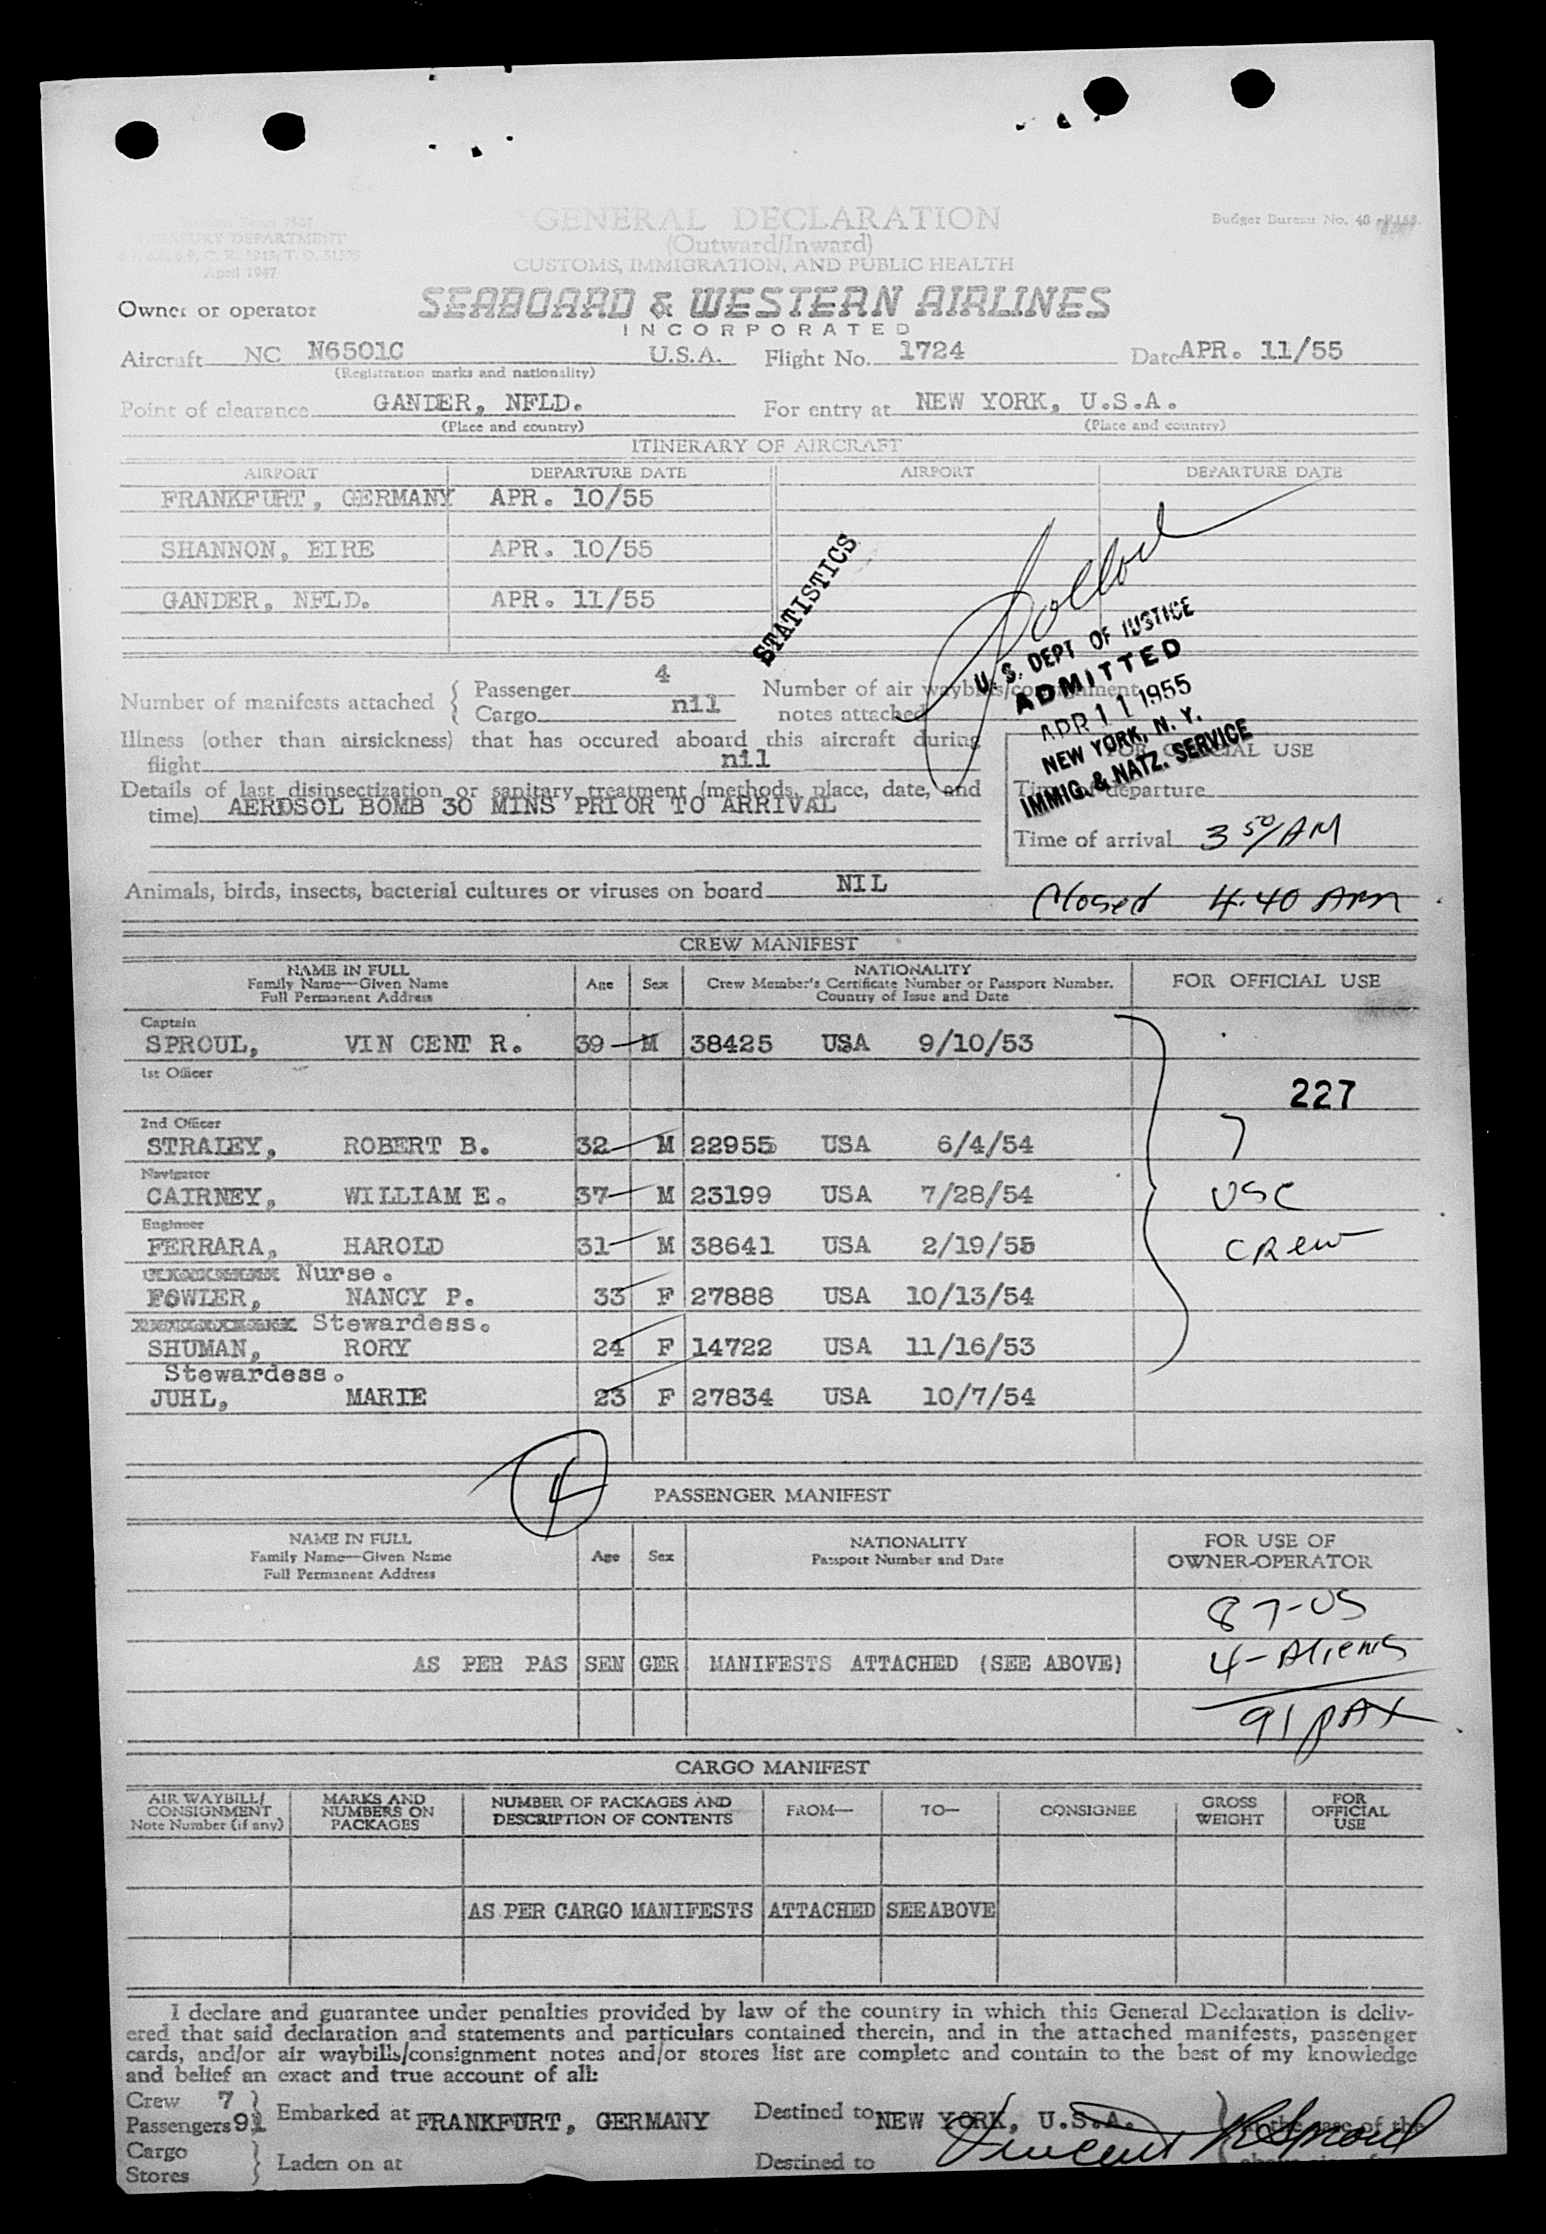 TREASURY DEPARTMENT
April 1947
GENERAL DECLARATION
(Outward/Inward)
CUSTOMS, IMMIGRATION, AND PUBLIC HEALTH
Budget Bureau No. 48
Owner or operator
SEABOARD & WESTERN AIRLINES
INCORPORATED
Aircraft NC N6501C U.S.A. Flight No. 1724 Date APR. 11/55
(Registration marks and nationality)
Point of clearance GANDER, NFLD. For entry at NEW YORK, U.S.A.
(Place and country) (Place and country)
ITINERARY OF AIRCRAFT
AIRPORT DEPARTURE DATE AIRPORT DEPARTURE DATE
FRANKFURT, GERMANY APR. 10/55
SHANNON, EIRE APR. 10/55
GANDER, NFLD. APR. 11/55
STATISTICS
U. S. DEPT OF JUSTICE
ADMITTED
APR 11 1955
NEW YORK, N. Y.
IMMIG. & NATZ. SERVICE
Number of manifests attached { Passenger 4
Cargo nil
Number of air waybills/consignment
notes attached
Illness (other than airsickness) that has occured aboard this aircraft during
flight nil
FOR OFFICIAL USE
Details of last disinsectization or sanitary treatment (methods, place, date, and
time) AEROSOL BOMB 30 MINS PRIOR TO ARRIVAL
Time of departure
Time of arrival 3 50/AM
Animals, birds, insects, bacterial cultures or viruses on board NIL
Closed 4:40 Am
CREW MANIFEST
NAME IN FULL
Family Name—Given Name
Full Permanent Address
Age Sex
NATIONALITY
Crew Member's Certificate Number or Passport Number.
Country of Issue and Date
FOR OFFICIAL USE
Captain
SPROUL, VIN CENT R. 39 M 38425 USA 9/10/53
1st Officer
227
2nd Officer
STRALEY, ROBERT B. 32 M 22955 USA 6/4/54
7
Navigator
CAIRNEY, WILLIAM E. 37 M 23199 USA 7/28/54
USC
Engineer
FERRARA, HAROLD 31 M 38641 USA 2/19/55
Crew
Nurse.
FOWLER, NANCY P. 33 F 27888 USA 10/13/54
Stewardess.
SHUMAN, RORY 24 F 14722 USA 11/16/53
Stewardess.
JUHL, MARIE 23 F 27834 USA 10/7/54
4
PASSENGER MANIFEST
NAME IN FULL
Family Name—Given Name
Full Permanent Address
Age Sex
NATIONALITY
Passport Number and Date
FOR USE OF
OWNER-OPERATOR
87-US
AS PER PAS SEN GER MANIFESTS ATTACHED (SEE ABOVE)
4-Aliens
91 PAX
CARGO MANIFEST
AIR WAYBILL/
CONSIGNMENT
Note Number (if any)
MARKS AND
NUMBERS ON
PACKAGES
NUMBER OF PACKAGES AND
DESCRIPTION OF CONTENTS
FROM—
TO—
CONSIGNEE
GROSS
WEIGHT
FOR
OFFICIAL
USE
AS PER CARGO MANIFESTS ATTACHED SEE ABOVE
I declare and guarantee under penalties provided by law of the country in which this General Declaration is deliv-
ered that said declaration and statements and particulars contained therein, and in the attached manifests, passenger
cards, and/or air waybills/consignment notes and/or stores list are complete and contain to the best of my knowledge
and belief an exact and true account of all:
Crew 7
Passengers 91
Embarked at FRANKFURT, GERMANY Destined to NEW YORK, U.S.A.
in the case of the
Vincent R Sproul
Cargo
Stores
Laden on at Destined to